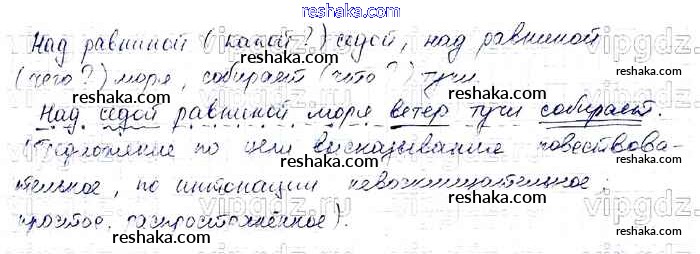 reshaka.com
Над равниной (какой?) седой, над равниной
reshaka.com
(чего?) моря, собирает (что?) тучи.
reshaka.com
Над седой равниной моря ветер тучи собирает.
reshaka.com
(Предложение по цели высказывания повествова-
reshaka.com
тельное, по интонации невосклицательное,
reshaka.com
простое, распространённое).
reshaka.com